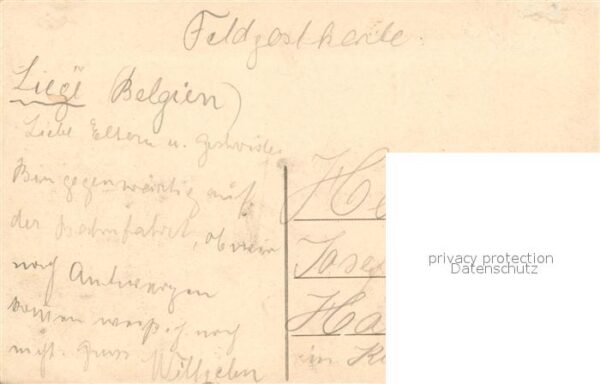 Feldpostkarte.
Liegë (Belgien)
Liebe Eltern u. Geschwister
Bin gegenwärtig auf
der Bahnfahrt, ob wir
nach Antwerpen
kommen weiß ich noch
nicht. Gruss
Wilhelm
He
Jose
Ha
in K
privacy protection
Datenschutz